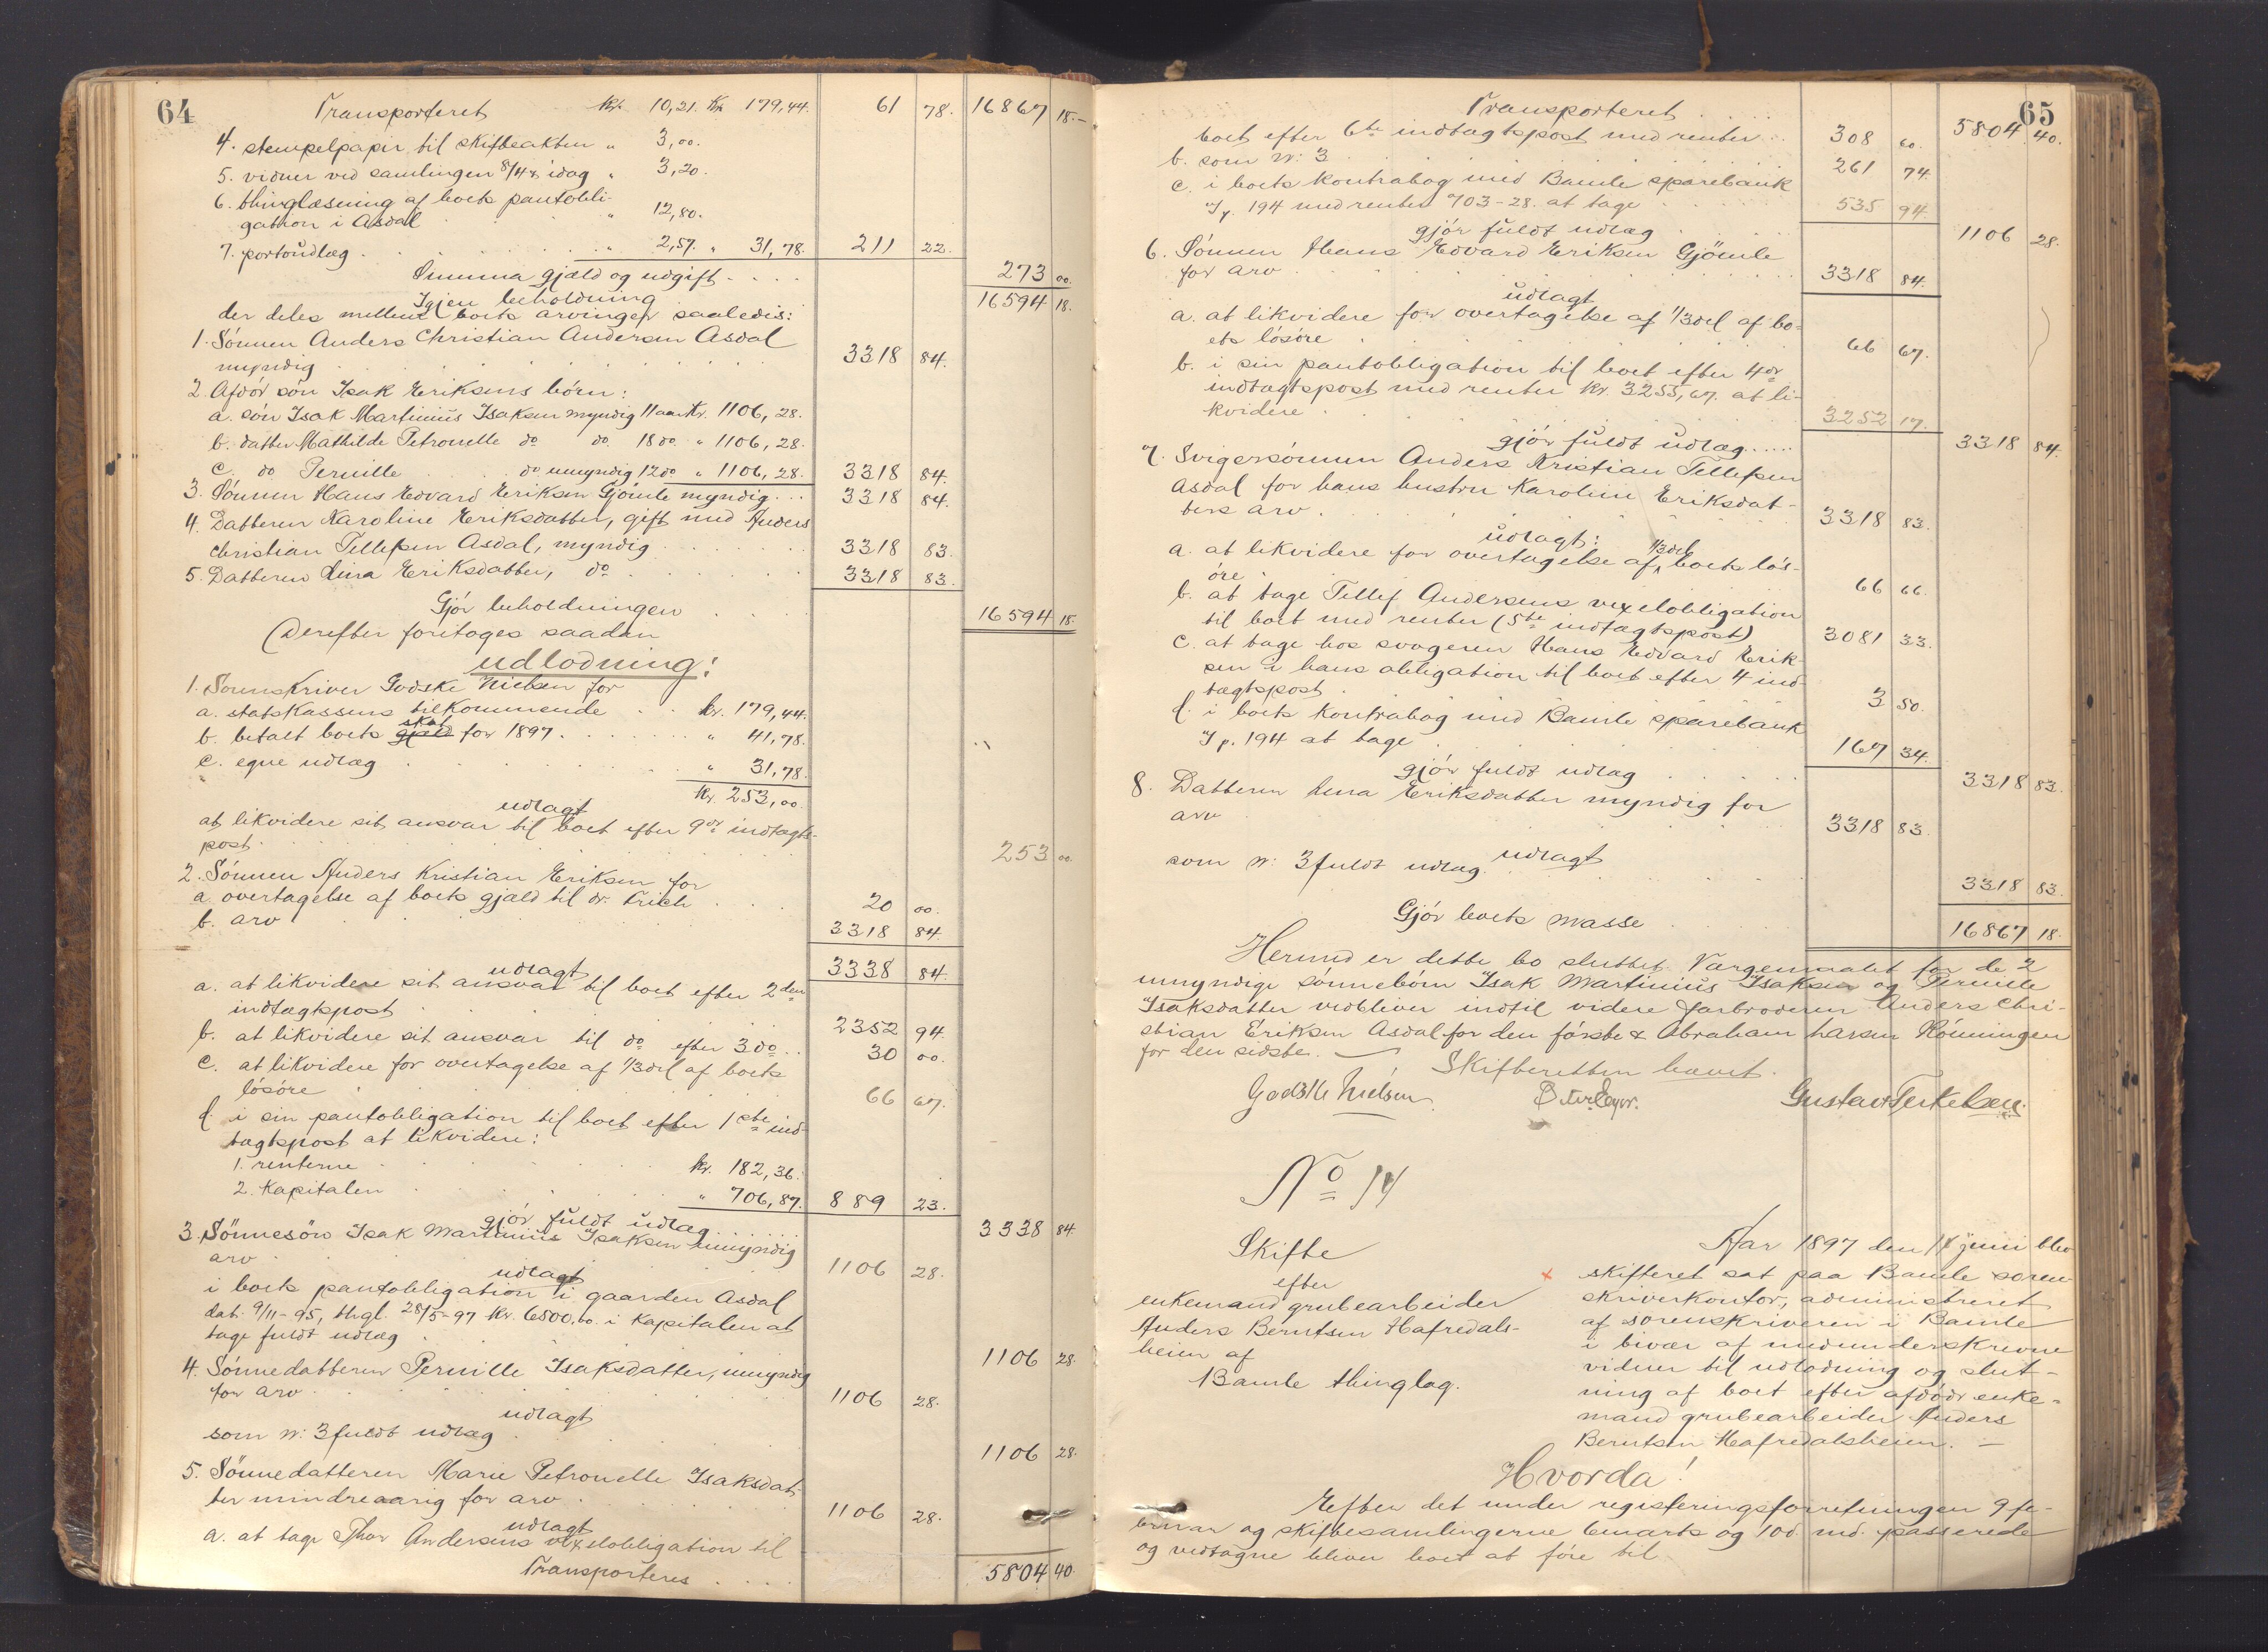 64
Transporteret Kr. 10,21. Kr. 179,44. 61 78. 16867 18.-
4. stempelpapir til skifteakten „ 3,00.
5. vidner ved samlingen 8/4 & idag „ 3,20.
6. thinglæsning af boets pantobli-
gation i Asdal „ 12,80.
7. portoudlæg . . . „ 2,57. „ 31,78. 211 22.
Summa gjæld og udgift . . . . 273 00.
Igjen beholdning 16594 18.
der deles mellem boets arvinger saaledes:
1. Sönnen Anders Christian Andersen Asdal
myndig . . . 3318 84.
2. Afdöd sön Isak Eriksens börn:
a. sön Isak Martinius Isaksen myndig 11 aar Kr. 1106,28.
b. datter Mathilde Petronelle do do. 18 do. „ 1106,28.
c. do Pernille do umyndig 12 do „ 1106,28. 3318 84.
3. Sönnen Hans Edvard Eriksen Gjömle myndig . . . 3318 84.
4. Datteren Karoline Eriksdatter, gift med Anders
Christian Tellefsen Asdal, myndig . . . 3318 83.
5. Datteren Lina Eriksdatter, do . . . 3318 83.
Gjör beholdningen . . . . 16594 18.
Derefter foretoges saadan
udlodning:
1. Sorenskriver Godske Nielsen for
a. statskassens tilkommende . . kr. 179,44.
b. betalt boets gjæld skat for 1897 . . . „ 41,78.
c. egne udlæg . . . „ 31,78.
Kr. 253,00.
udlagt
at likvidere sit ansvar til boet efter 9de indtægts-
post . . . 253 00.
2. Sönnen Anders Kristian Eriksen for
a. overtagelse af boets gjæld til dr. Frich . . . 20 00.
b. arv . . . 3318 84.
3338 84.
udlagt
a. at likvidere sit ansvar til boet efter 2den
indtægtspost . . . 2352 94.
b. at likvidere sit ansvar til do efter 3 do . . 30 00.
c. at likvidere for overtagelse af 1/3 del af boets
lösöre . . . 66 67.
d. i sin pantobligation til boet efter 1ste ind-
tægtspost at likvidere:
1. renterne . . . kr. 182,36.
2. Kapitalen . . . „ 706,87. 889 23.
gjör fuldt udlæg . . . . 3338 84.
3. Sönnesön Isak Martinius Isaksen umyndig
arv . . . 1106 28.
udlagt
i boets pantobligation i gaarden Asdal
dat. 9/11-95, thgl. 28/5-97 kr. 6500.00. i Kapitalen at
tage fuldt udlæg . . . 1106 28.
4. Sönnedatteren Pernille Isaksdatter, umyndig
for arv . . . 1106 28.
udlagt
som N: 3 fuldt udlæg . . . 1106 28.
5. Sönnedatteren Marie Petronelle Isaksdat-
ter mindreaarig for arv . . . 1106 28.
udlagt
a. at tage Thor Andersens vexelobligation til
Transporteres . . . . 5804 40.
65
Transporteret . . . . 5804 40.
boet efter 6te indtægtspost med renter . . 308 60.
b. som N: 3 . . . 261 74.
c. i boets kontrabog med Bamle sparebank
I p. 194 med renter 703-28. at tage . . . 535 94.
gjör fuldt udlæg . . . 1106 28.
6. Sönnen Hans Edvard Eriksen Gjömle
for arv . . . 3318 84.
udlagt
a. at likvidere for overtagelse af 1/3 del af bo-
ets lösöre . . . 66 67.
b. i sin pantobligation til boet efter 4de
indtægtspost med renter kr. 3255,67. at li-
kvidere . . . 3252 17.
gjör fuldt udlæg . . . . . 3318 84.
7. Svigersönnen Anders Kristian Tellefsen
Asdal for hans hustru Karoline Eriksdat-
ters arv . . . 3318 83.
udlagt:
a. at likvidere for overtagelse af 1/3 del boets lös-
öre . . . 66 66.
b. at tage Tellef Andersens vexelobligation
til boet med renter (5te indtægtspost) 3081 33.
c. at tage hos svogeren Hans Edvard Erik-
sen i hans obligation til boet efter 4 ind-
tægtspost . . . 3 50.
d. i boets kontrabog med Bamle sparebank
I p. 194 at tage . . . 167 34.
gjör fuldt udlæg . . . 3318 83.
8. Datteren Lina Eriksdatter myndig for
arv . . . 3318 83.
udlagt
som N: 3 fuldt udlæg . . . 3318 83.
Gjör boets masse . . . 16867 18.
Hermed er dette bo sluttet. Værgemaalet for de 2
umyndige sönnebörn Isak Martinius Isaksen og Pernille
Isaksdatter vedbliver indtil videre farbroderen Anders Chri-
stian Eriksen Asdal for den förste & Abraham Larsen Rönningen
for den sidste. —
Skifteretten hævet.
Godske Nielsen Gustav Terkelsen.
No 14
Skifte
efter
enkemand grubearbeider
Anders Berntsen Hafredals-
heien af
Bamle thinglag.
Aar 1897 den 14 juni blev
skifteret sat paa Bamle soren-
skriverkontor, administreret
af sorenskriveren i Bamle
i bivær af medunderskrevne
vidner til udlodning og slut-
ning af boet efter afdöde enke-
mand grubearbeider Anders
Berntsen Hafredalsheien. —
Hvorda!
Efter det under registeringsforretningen 9 fe-
bruar og skiftesamlingerne 6 marts og 10 d. md. passerede
og vedtagne bliver boet at före til